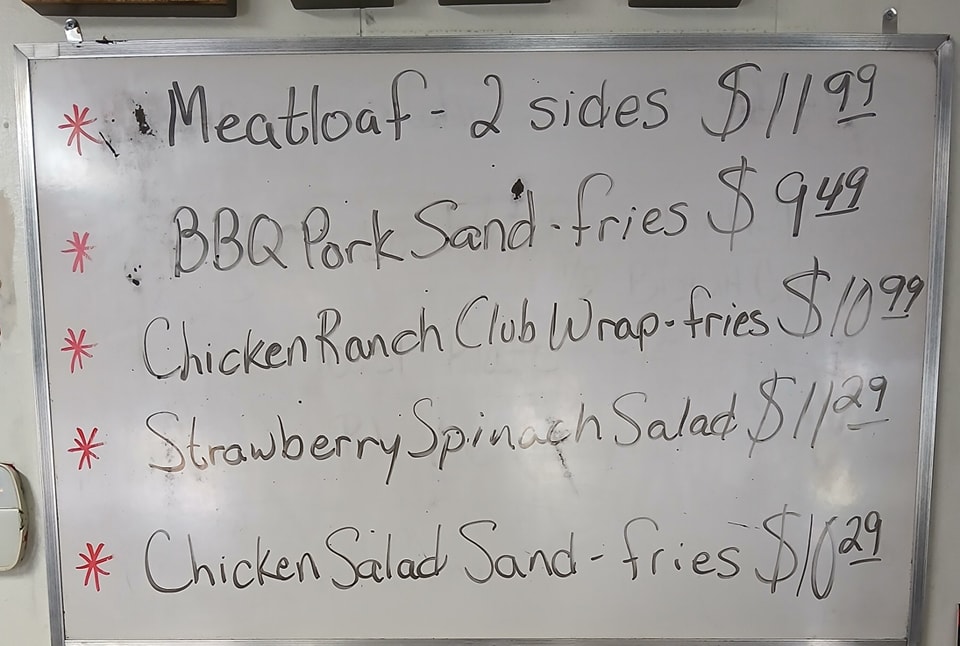 * Meatloaf - 2 sides $11.99
* BBQ Pork Sand - fries $9.49
* Chicken Ranch Club Wrap - fries $10.99
* Strawberry Spinach Salad $11.29
* Chicken Salad Sand - fries $10.29